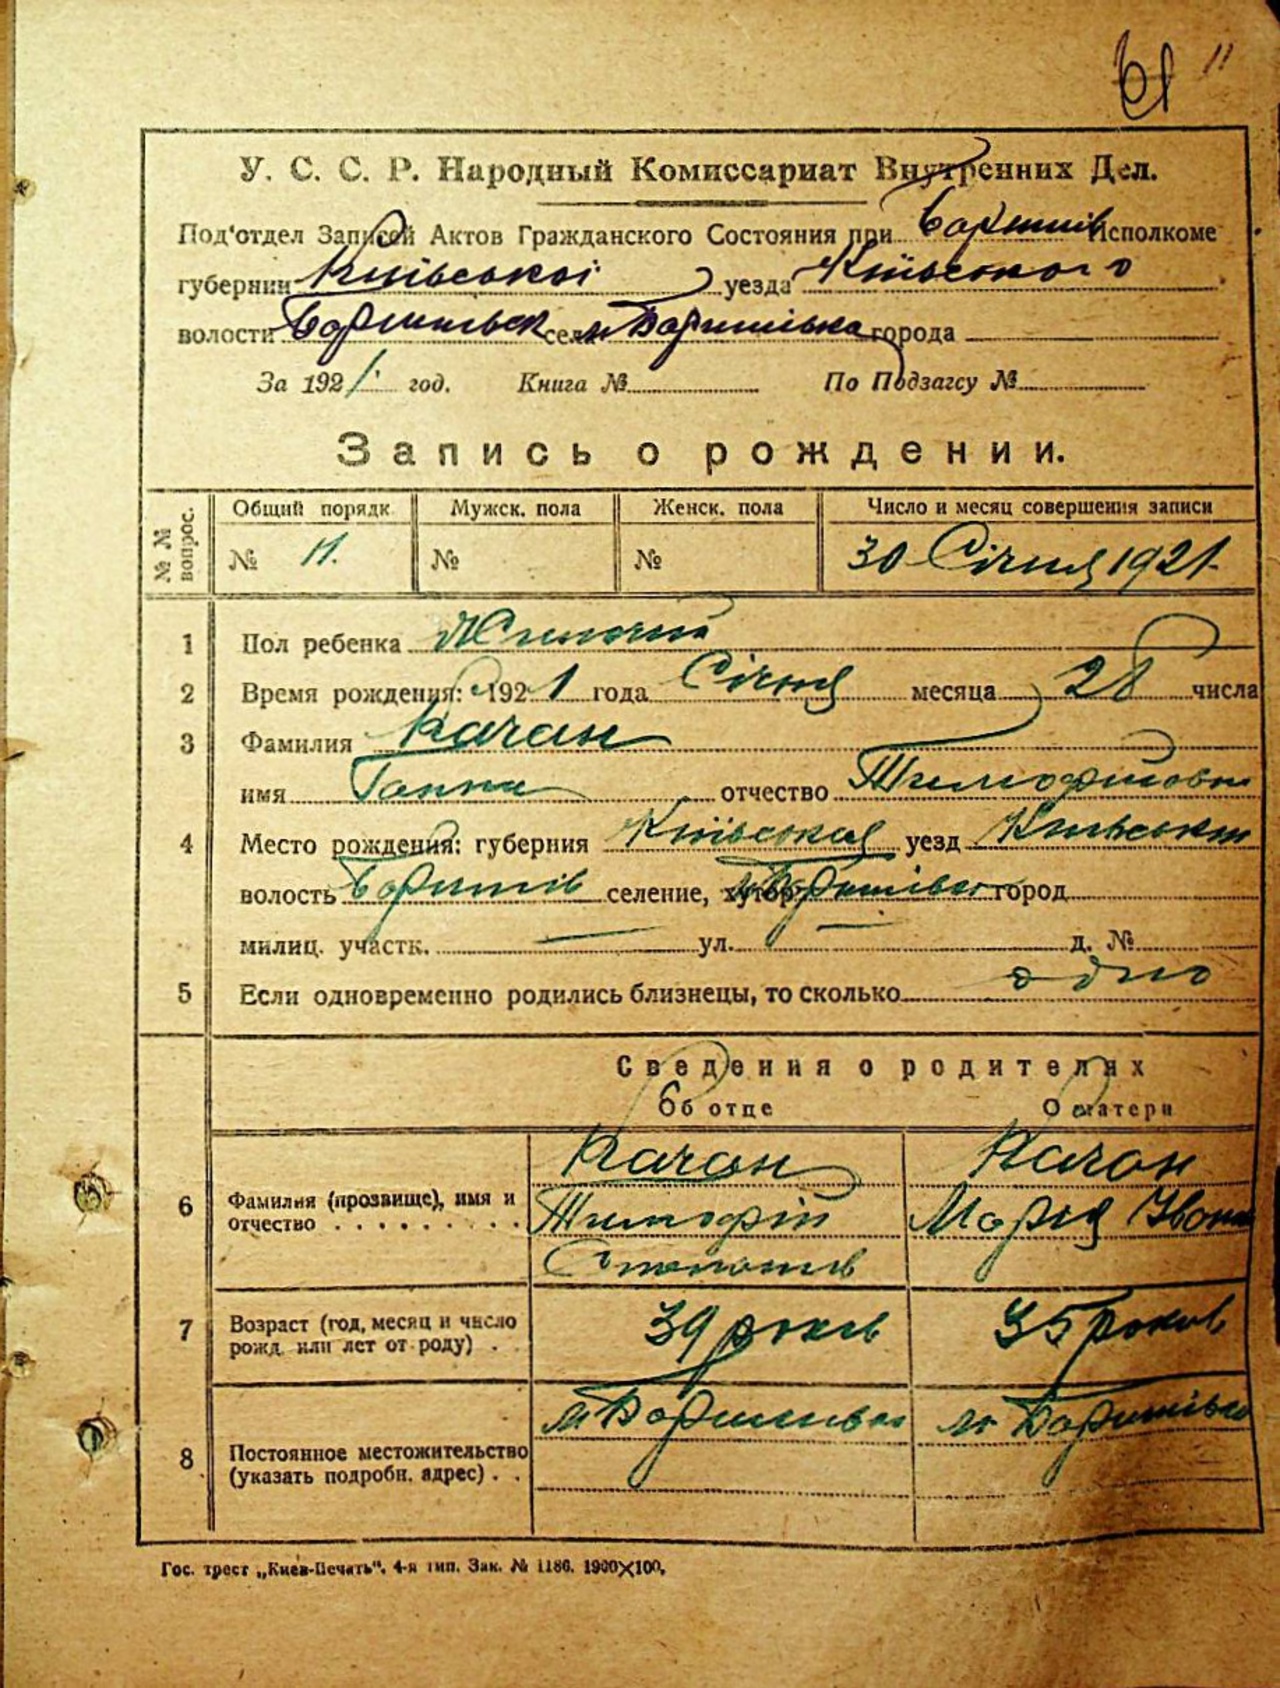 61 "
У. С. С. Р. Народный Комиссариат Внутренних Дел.
Под'отдел Записей Актов Гражданского Состояния при Боришів Исполкоме
губернии Київської уезда Київського
волости Боришівськ села м Боришівка города
За 1921. год. Книга № По Подзагсу №
Запись о рождении.
№ № вопрос. Общий порядк. Мужск. пола Женск. пола Число и месяц совершения записи
№ 11. № № 30 Січня 1921
1 Пол ребенка Жиночий
2 Время рождения: 1921 года Січня месяца 28 числа
3 Фамилия Качан
имя Ганна отчество Тимофійовна
4 Место рождения: губерния Київська уезд Київський
волость Боришів селение, хутор м Боришівка город
милиц. участк. ул. д. №
5 Если одновременно родились близнецы, то сколько одно
Сведения о родителях
Об отце О матери
6 Фамилия (прозвище), имя и отчество Качан Тимофій Степанов Качан Мария Иван
7 Возраст (год, месяц и число рожд. или лет от роду) 39 років 35 років
8 Постоянное местожительство (указать подробн. адрес) м Боришівка м Боришівка
Гос. трест „Киев-Печать". 4-я тип. Зак. № 1186. 1900×100,